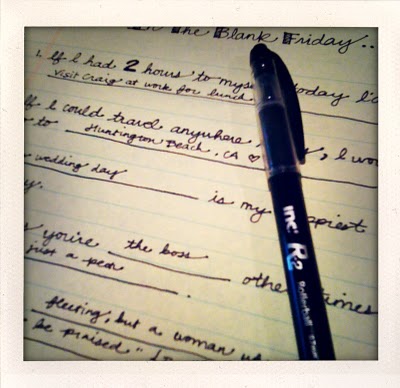 The Blank Friday..
1. If I had 2 hours to today I'd
Visit Craig at work for lunch
If I could travel anywhere,
to Huntington Beach, CA ♡
wedding day is my
you're the boss other times
just a
fleeting, but a woman
be praised"
inc R2 Rollerball